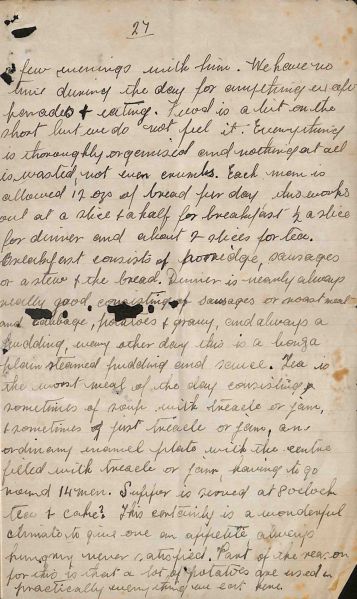 27
few evenings with him. We have no
time during the day for anything except
parades & eating. Food is a bit on the
short but we do not feel it. Everything
is thoroughly organised and nothing at all
is wasted, not even crumbs. Each man is
allowed 12 ozs of bread per day this works
out at a slice & a half for breakfast ½ a slice
for dinner and about 2 slices for tea.
Breakfast consists of porridge, sausages
or a stew & the bread. Dinner is nearly always
really good consisting of sausages or roast meat
and cabbage, potatoes & gravy, and always a
pudding, every other day this is a
plain steamed pudding and sauce. Tea is
the worst meal of the day consisting
sometimes of soup with treacle or jam,
& sometimes of just treacle or jam, an
ordinary enamel plate with the centre
filled with treacle or jam, having to go
round 14 men. Supper is served at 8 oclock
tea & cake? This certainly is a wonderful
climate to give one an appetite always
hungry never satisfied. Part of the reason
for this is that a lot of potatoes are used in
practically everything we eat here